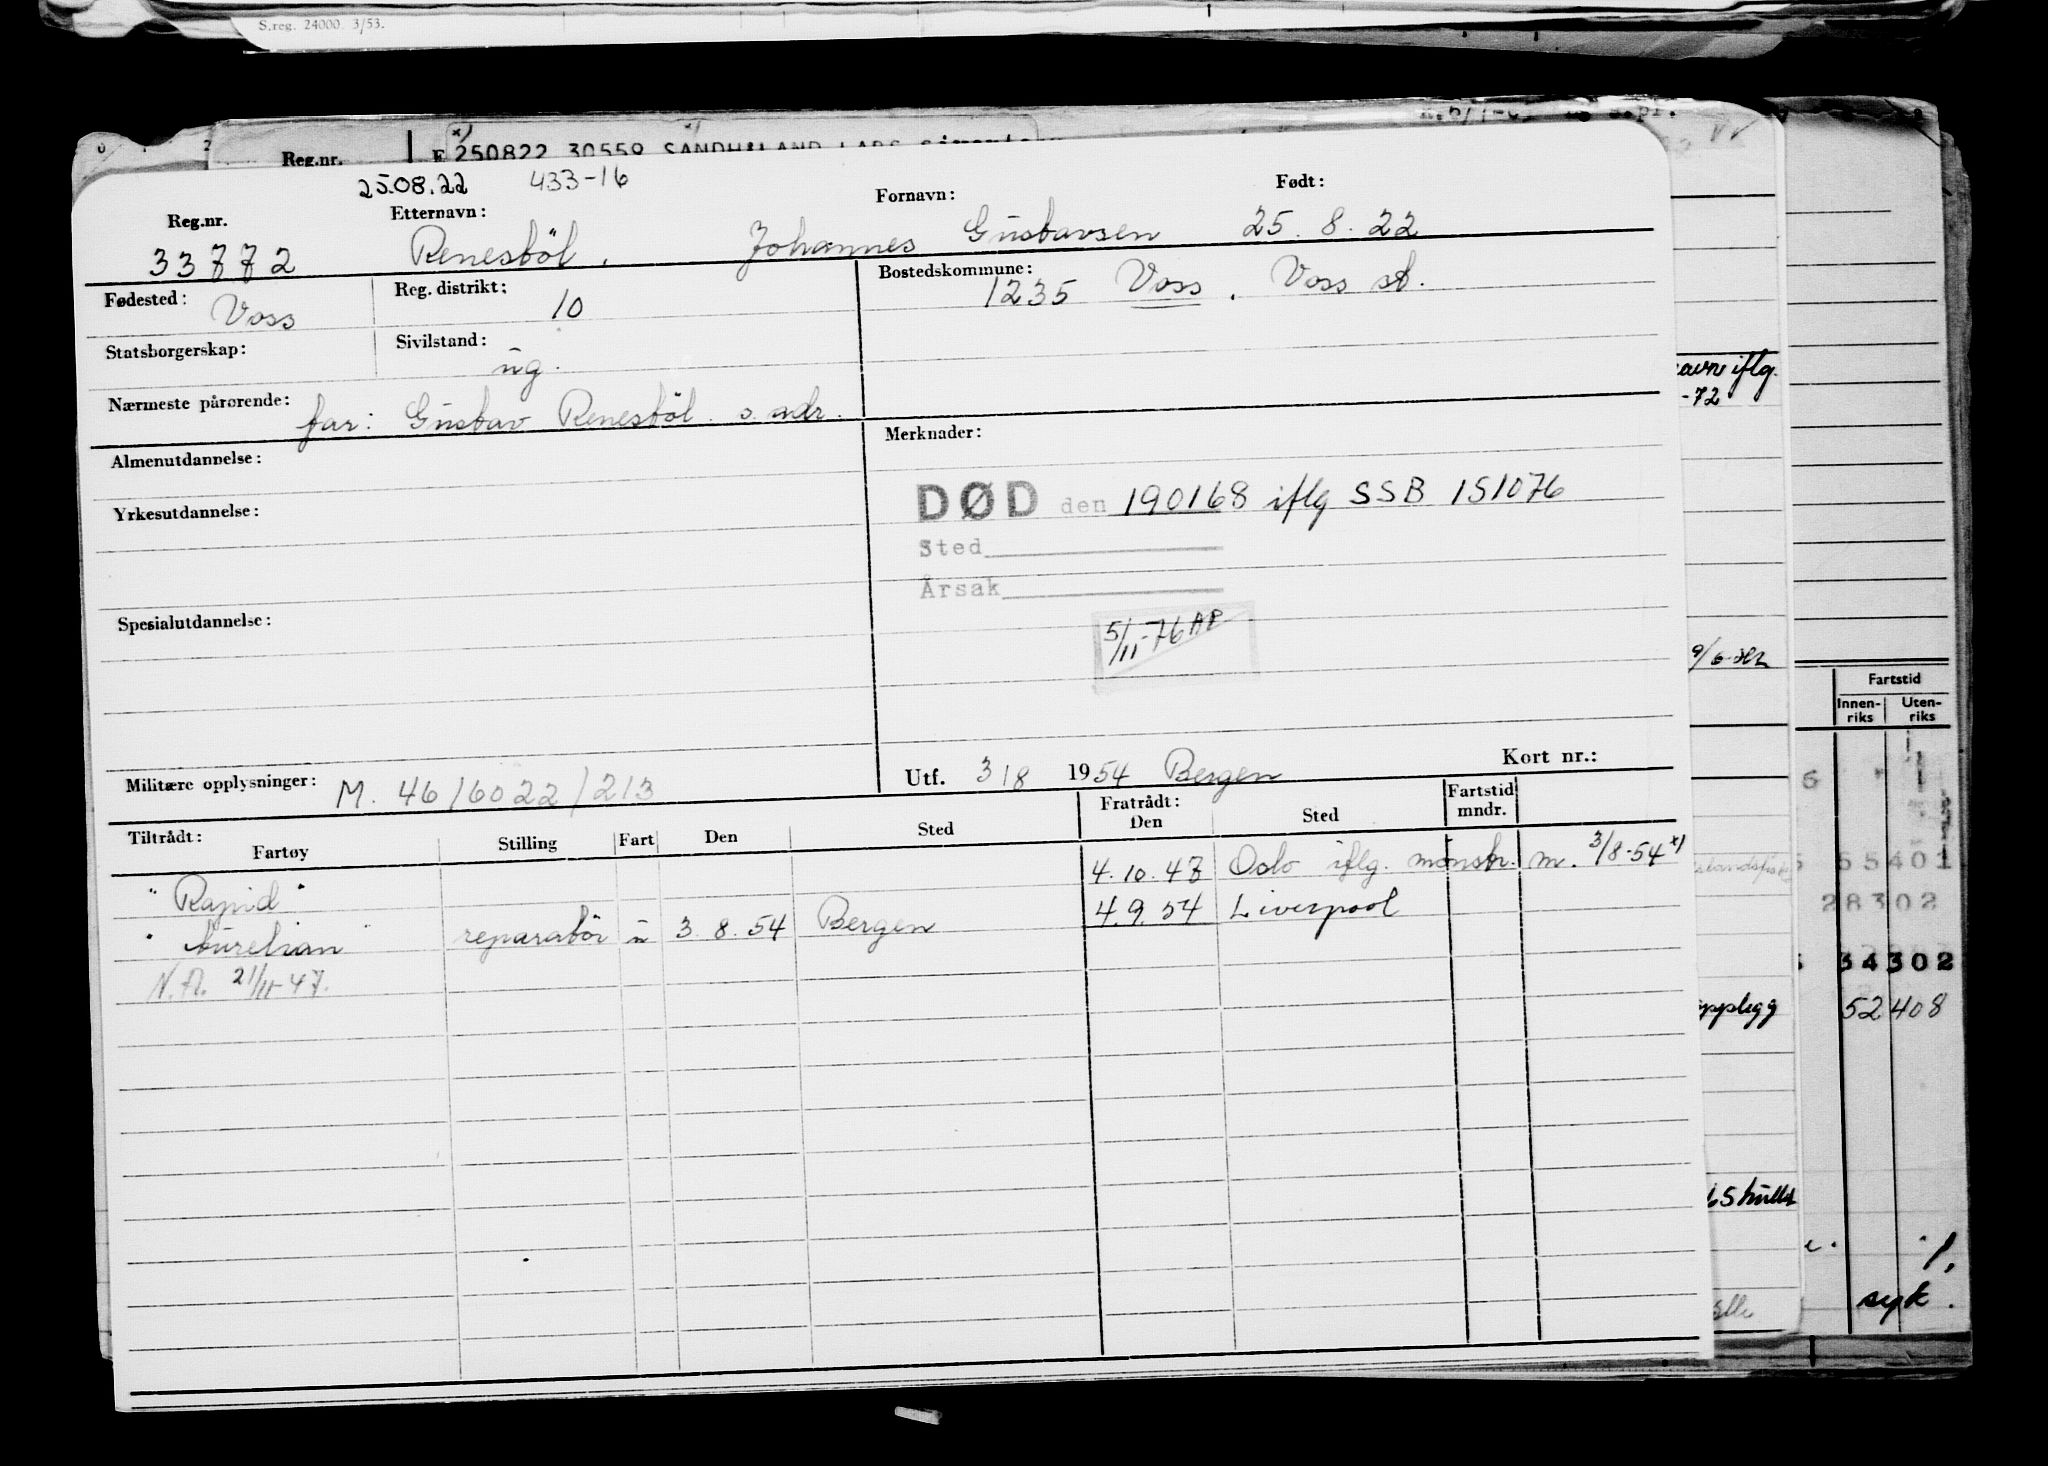 S.reg. 24000. 3/53.
Reg.nr.
250822 30559 SANDHALAND LARS
25.08.22 433-16
Reg.nr. Etternavn: Fornavn: Født:
33772 Renesböl. Johannes Gustavsen 25.8.22
Fødested: Voss Reg. distrikt: 10 Bostedskommune: 1235 Voss. Voss st.
Statsborgerskap: Sivilstand: ug.
Nærmeste pårørende: far: Gustav Renesböl. s. adr.
Almenutdannelse: Merknader:
DØD den 190168 iflg SSB 151076
Yrkesutdannelse:
Sted
Årsak
Spesialutdannelse:
5/11-76 AP
Militære opplysninger: M. 46/6022/213 Utf. 3/8 1954 Bergen Kort nr.:
Tiltrådt: Fratrådt: Fartstid
Fartøy Stilling Fart Den Sted Den Sted mndr.
"Rapid" 4.10.47 Oslo iflg. mønstr. m. 3/8-54 x)
"Aurelian" reparatör u 3.8.54 Bergen 4.9.54 Liverpool
N.A. 21/11-47.
avn iflg.
-72
Fartstid
Innen-riks Uten-riks
55401
28302
34302
opplegg 52408
syk.